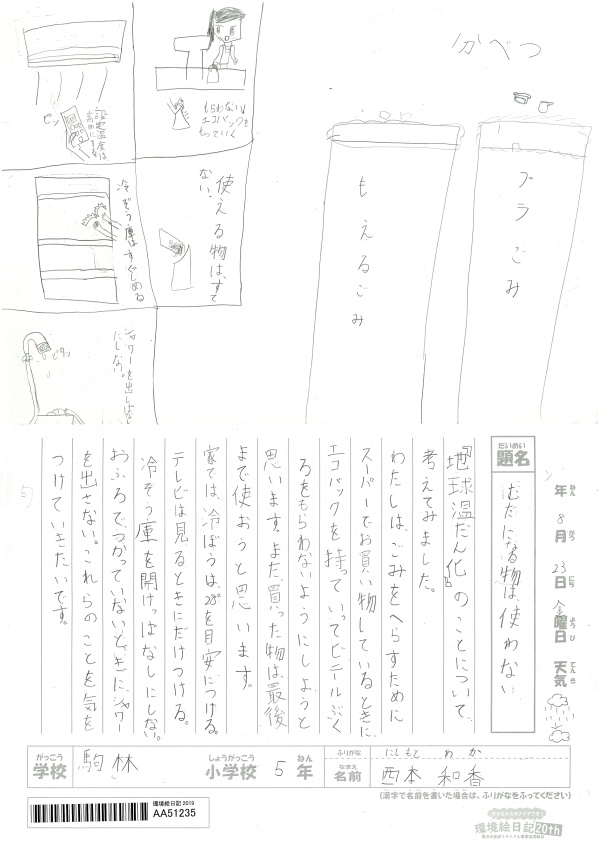 分べつ
プラごみ
もえるごみ
もらわない
エコバックを
もっていく
設定温度は
高めにする
ピッ
使える物は、すて
ない。
冷ぞう庫はすぐしめる
シャワーを出しっぱなし
にしない。
ピタッ
年 8月 23日 金曜日 天気
ねん がつ にち ようび てんき
だいめい
題名
むだになる物は、使わない
『地球温だん化』のことについて、
考えてみました。
わたしは、ごみをへらすために
スーパーでお買い物しているときに、
エコバックを持っていってビニールぶく
ろをもらわないようにしようと
思います。また、買った物は、最後
まで使おうと思います。
家では、冷ぼうは、28°を目安につける。
テレビは見るときにだけつける。
冷ぞう庫を開けっぱなしにしない。
おふろでつかっていないときに、シャワー
を出さない。これらのことを気を
つけていきたいです。
がっこう
学校
駒林
しょうがっこう
小学校
5
ねん
年
ふりがな
にしもと わか
なまえ
名前
西本 和香
(漢字で名前を書いた場合は、ふりがなをふってください)
環境絵日記2019
AA51235
環境絵日記20th